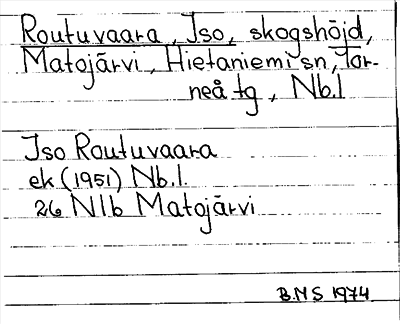 Routuvaara, Iso, skogshöjd,
Matojärvi, Hietaniemi sn, Tor-
neå tg, Nb.l
Iso Routuvaara
ek (1951) Nb.l.
26 Nlb Matojärvi
B.M S 1974